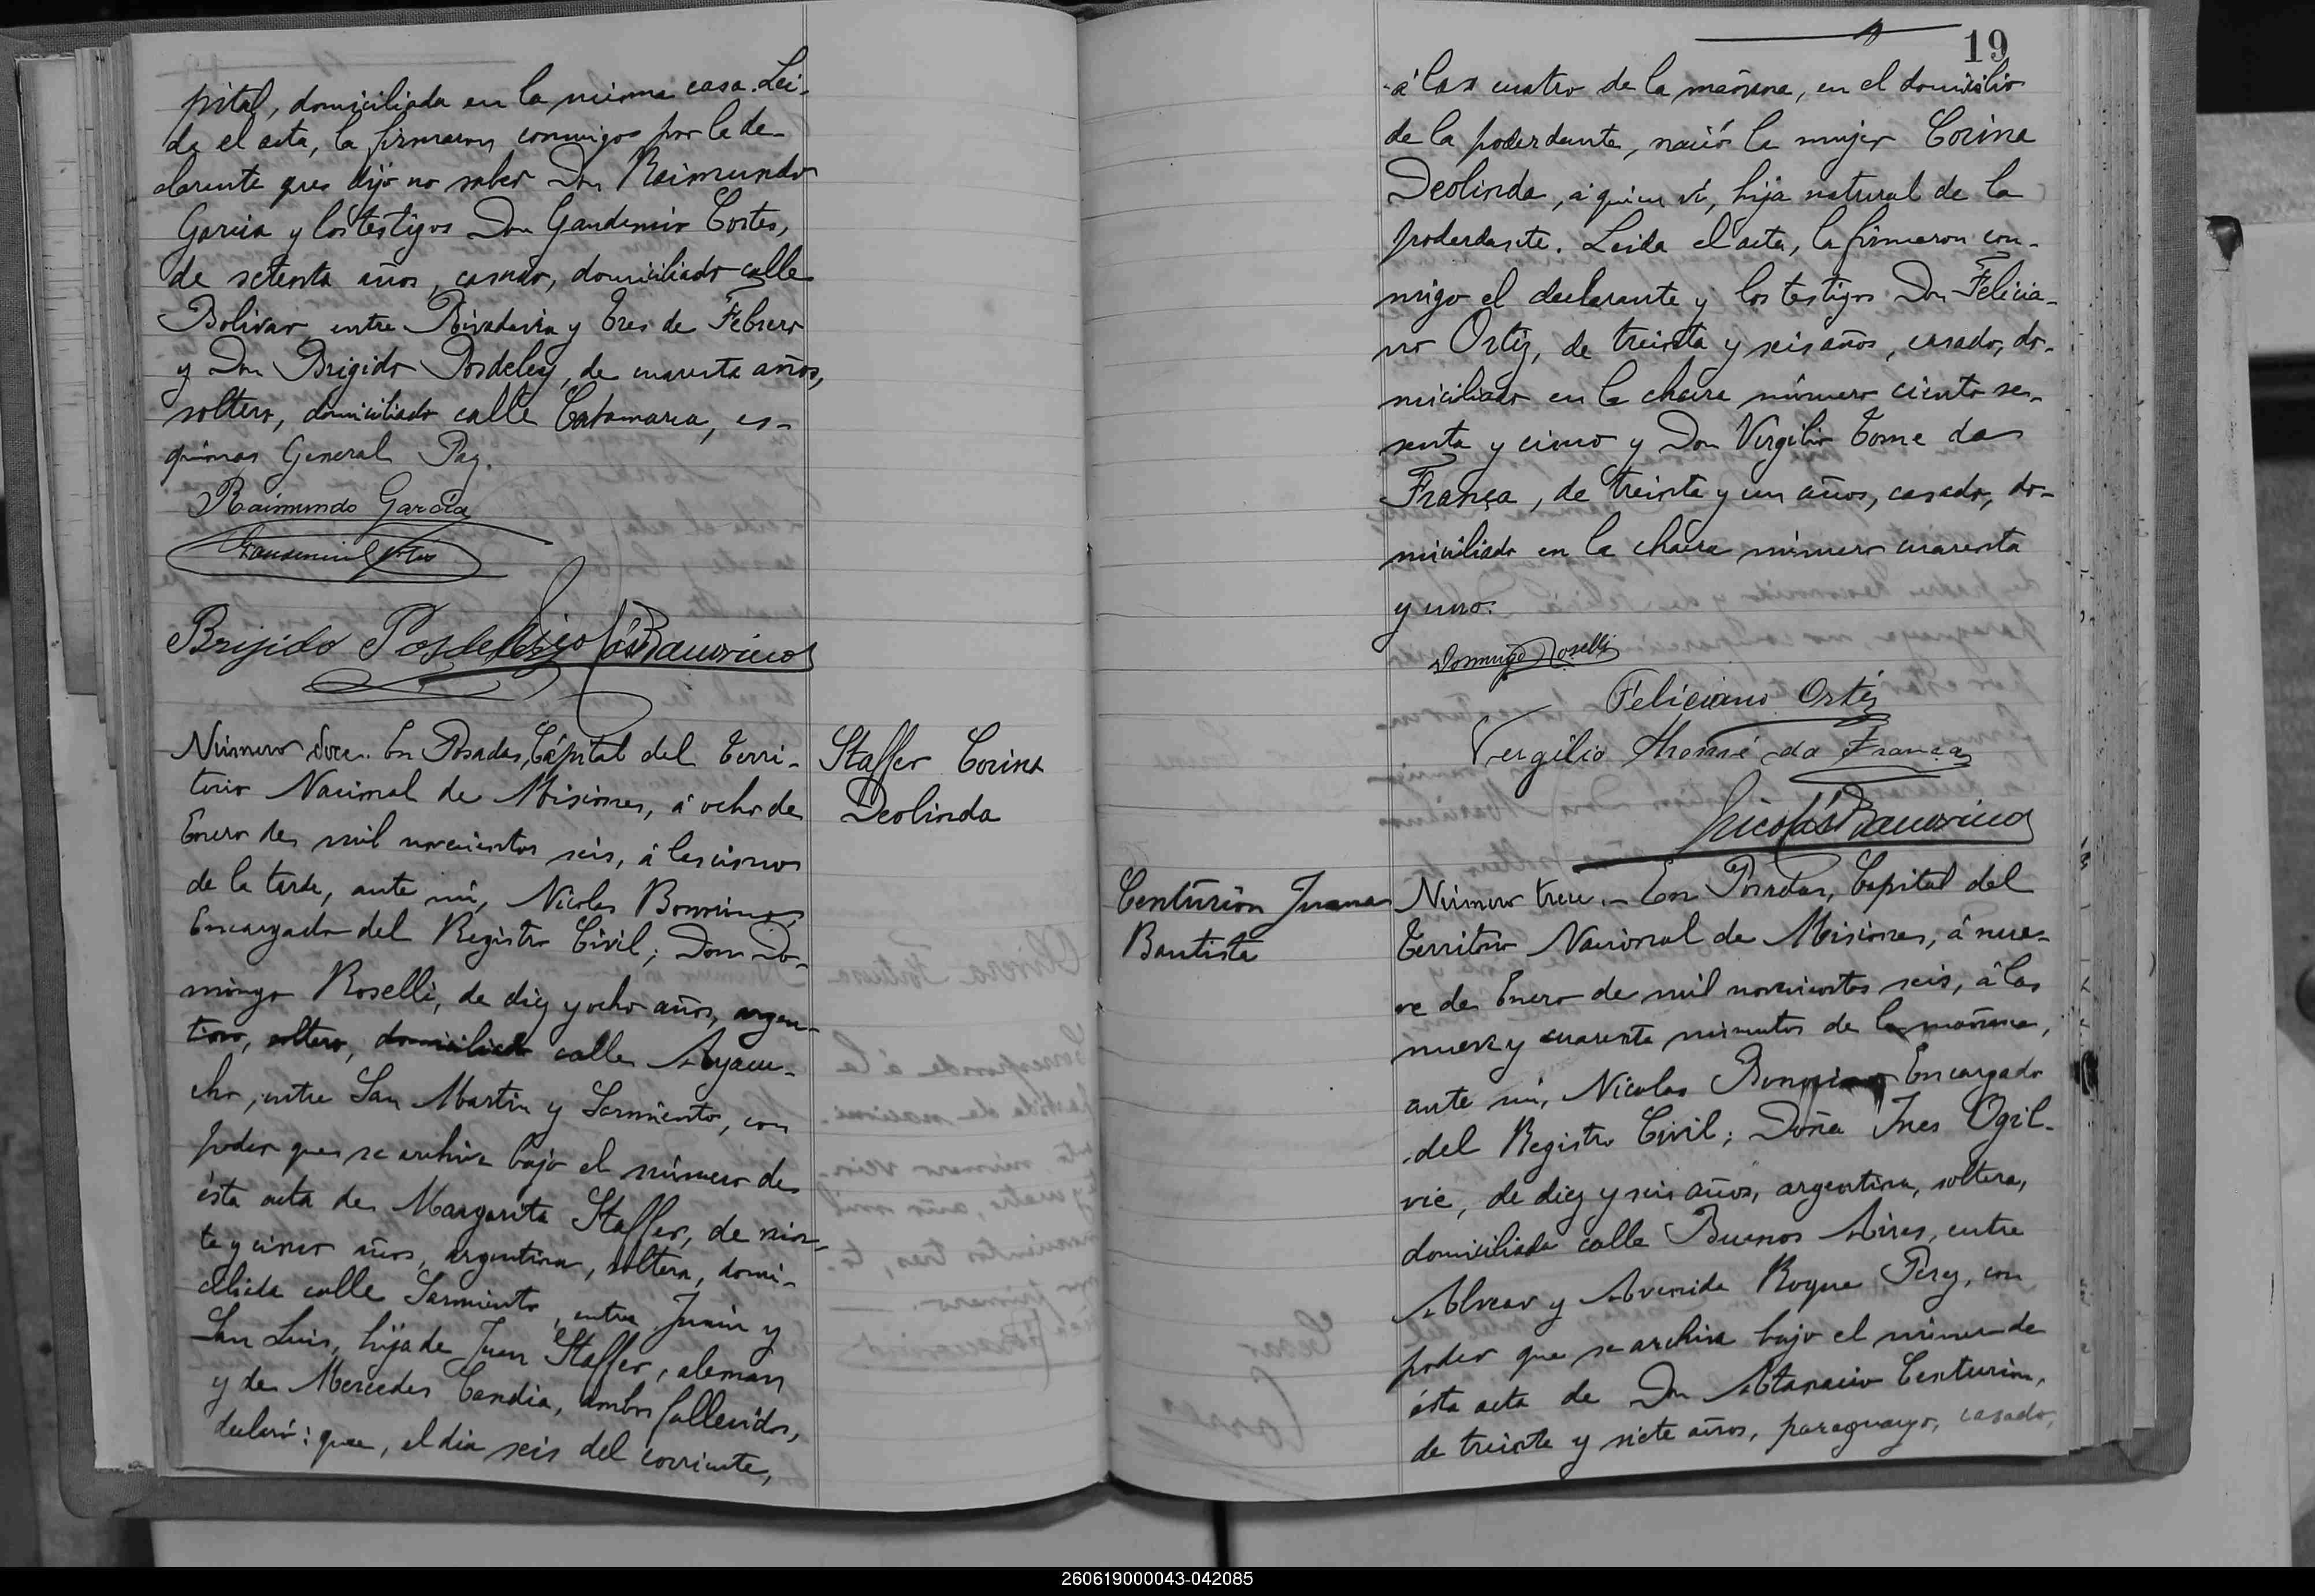 pital, domiciliada en la misma casa. Lei-
da el acta, la firmaron conmigo por la de-
clarante que dijo no saber Don Raimundo
Garcia y los testigos Don Gaudencio Cortes,
de setenta años, casado, domiciliado calle
Bolivar entre Rivadavia y Tres de Febrero
y Don Brigido Posdeley, de cuarenta años,
soltero, domiciliado calle Catamarca, es-
quinas General Paz.
Raimundo García
Brijido
Número doce. En Posadas, Cápital del Terri-
torio Nacional de Misiones, á ocho de
Enero de mil novecientos seis, á las cinco
de la tarde, ante mí, Nicolas
Encargado del Registro Civil; Don Do-
mingo Roselli, de diez y ocho años, argen-
tino, soltero, domiciliado calle Ayacu-
cho, entre San Martin y Sarmiento, con
poder que se archiva bajo el número de
ésta acta de Margarita Staffer, de vein-
te y cinco años, argentina, soltera, domi-
ciliada calle Sarmiento, entre Junin y
San Luis, hija de Juan Staffer, aleman
y de Mercedes Candia, ambos fallecidos,
declaró: que, el dia seis del corriente,
Staffer Corina
Deolinda
19
á las cuatro de la mañana, en el domicilio
de la poderdante, nació la mujer Corina
Deolinda, á quien ví, hija natural de la
poderdante. Leida el acta, la firmaron con-
migo el declarante y los testigos Don Felicia-
no Ortiz, de treinta y seis años, casado, do-
miciliado en la chacra número ciento se-
senta y cinco y Don Virgilio Tome da
França, de treinta y un años, casado, do-
miciliado en la chacra número cuarenta
y uno.
Domingo Roselli
Feliciano Ortiz
Vergilio Thomé da França
Nicolás
Centurión Juana
Bautista
Número trece. - En Posadas, Capital del
Territorio Nacional de Misiones, á nue-
ve de Enero de mil novecientos seis, á las
nueve y cuarenta minutos de la mañana,
ante mí, Nicolas Encargado
del Registro Civil; Doña Ines Ogil-
vie, de diez y seis años, argentina, soltera,
domiciliada calle Buenos Aires, entre
Alvear y Avenida Roque Perez, con
poder que se archiva bajo el número de
ésta acta de Don Atanacio Centurion,
de treinta y siete años, paraguayo, casado,
260619000043-042085